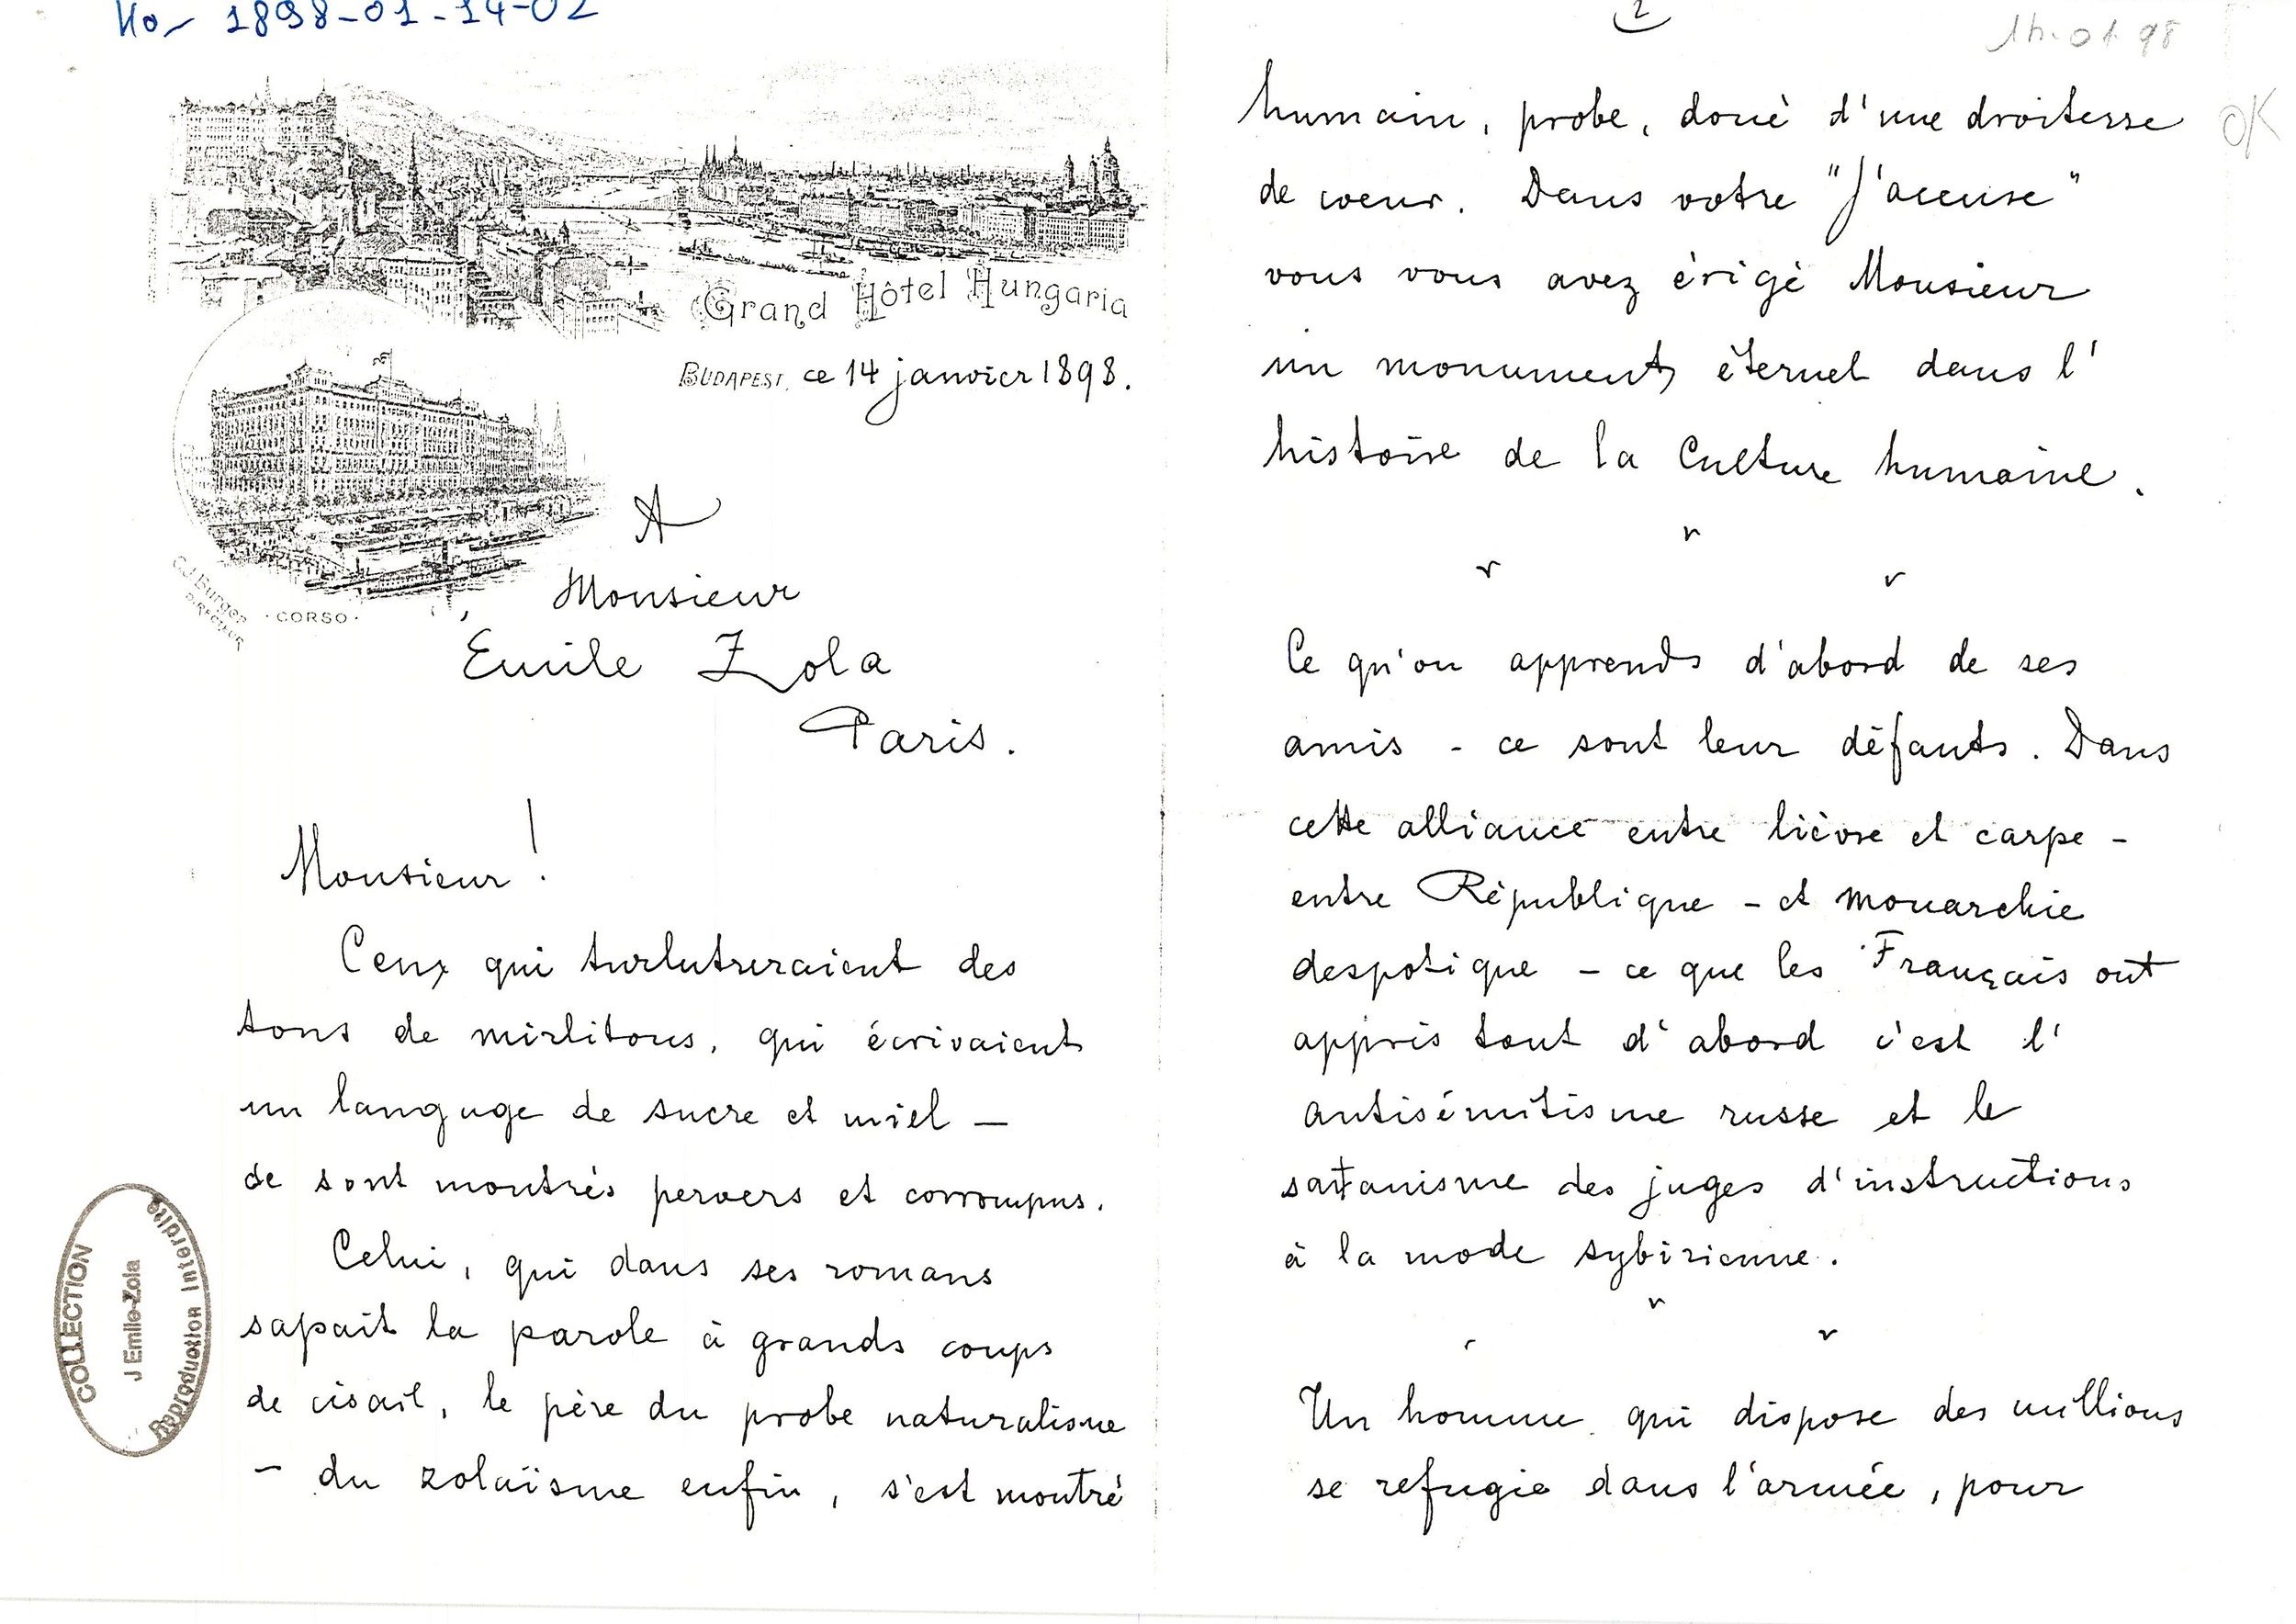 Ho- 1898-01-14-02
Grand Hôtel Hungaria
BUDAPEST, ce 14 janvier 1898.
C. J. Burger
DIRECTEUR
· CORSO ·
A
Monsieur
Emile Zola
Paris.
Monsieur!
Ceux qui turlutreraient des
tons de mirlitons, qui écrivaient
un languge de sucre et miel —
de sont montrés pervers et corrompus.
Celui, qui dans ses romans
sapait la parole à grands coups
de cisail, le père du probe naturalisme
- du zolaïsme enfin, s'est montré
COLLECTION
J Emile-Zola
Reproduction Interdite
2
14.01.98
OK
humain, probe, doué d'une droitesse
de coeur. Dans votre "J'accuse"
vous vous avez érigé Monsieur
un monument éternel dans l'
histoire de la Culture humaine.
Ce qu'on apprends d'abord de ses
amis - ce sont leur défauts. Dans
cette alliance entre lièvre et carpe -
entre République - et monarchie
despotique - ce que les Français ont
appris tout d'abord c'est l'
antisémitisme russe et le
satanisme des juges d'instructions
à la mode sybirienne.
Un homme qui dispose des millions
se refugie dans l'armée, pour